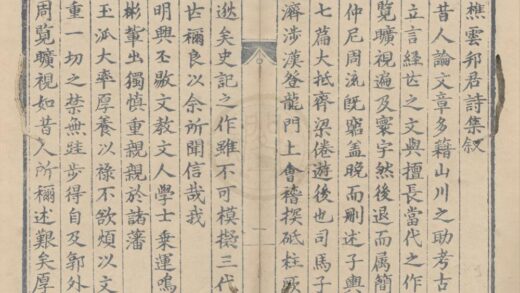 樵雲邦君詩集叙
昔人論文章多藉山川之助考古
立言經世之文與擅長當代之作
覽曠視遍及寰宇然後退而属簡
仲尼周流既窮盖晚而刪述子輿
七萹大抵齊梁倦遊後也司馬子
濟涉漢登龍門上會稽探砥柱
逖矣史記之作雖不可模擬三代
世稱良以余所聞信哉我
明興丕敭文教文人學士乗運鳴
彬軰出獨慎重親親於諸藩
王派大率厚養以禄不欲煩以文
重一切之禁無跬步得自及郭外
周覽曠視如昔人所稱述艱矣厚